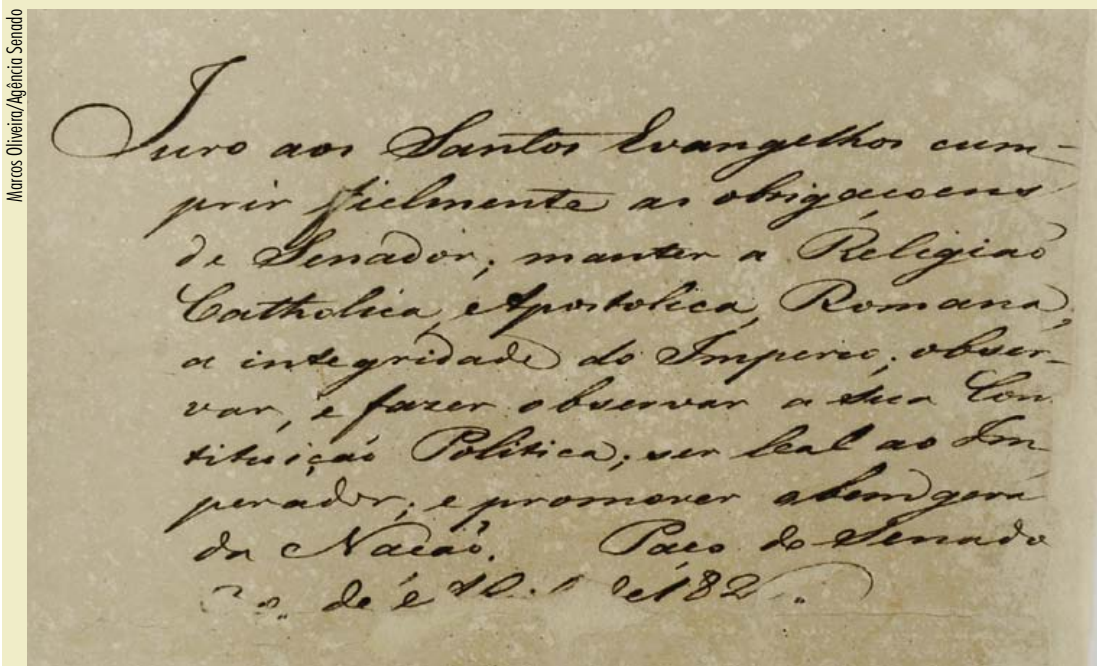 Marcos Oliveira/Agência Senado
Juro aos Santos Evangelhos cum-
prir fielmente as obrigaçoens
de Senador; manter a Religiaõ
Catholica, Apostolica, Romana,
a integridade do Imperio; obser-
var, e fazer observar a sua Con
tituiçaõ Politica; ser leal ao Im
perador; e promover o bem gera
da Naçaõ. Paço do Senado
de de 182